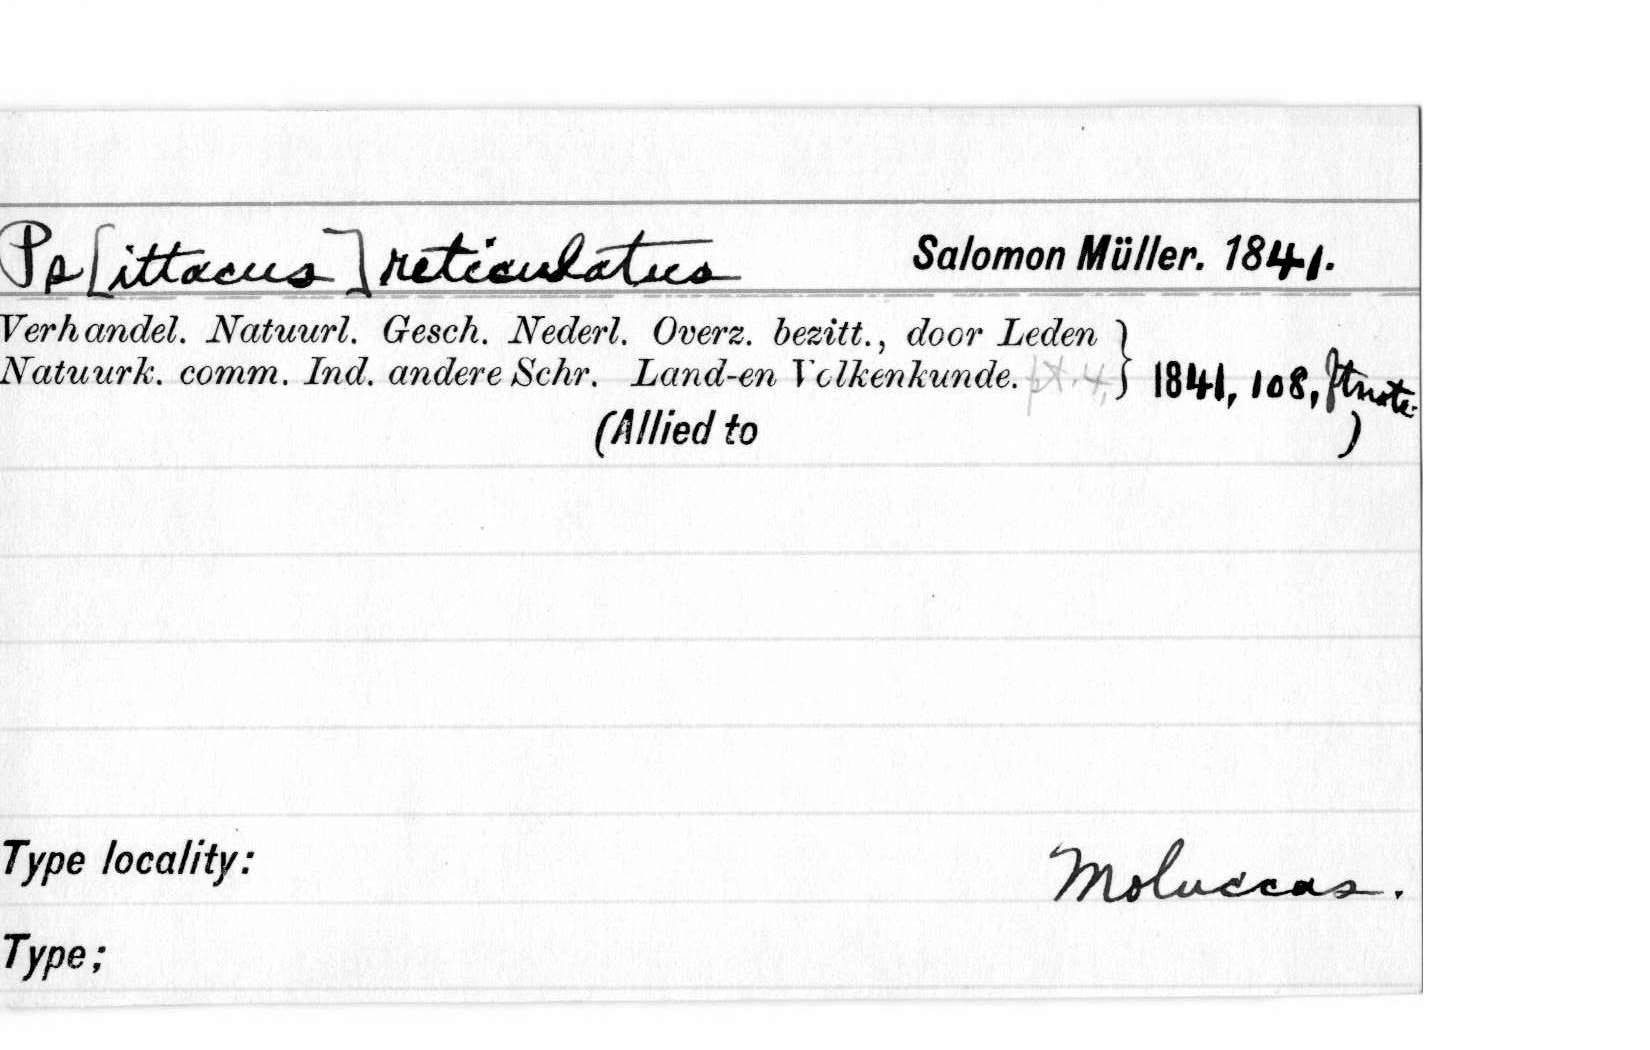 Ps[ittacus] reticulatus Salomon Müller. 1841.
Verhandel. Natuurl. Gesch. Nederl. Overz. bezitt., door Leden
Natuurk. comm. Ind. andere Schr. Land-en Volkenkunde. pt. 4, } 1841, 108, ftnote.
(Allied to )
Type locality: Moluccas.
Type;